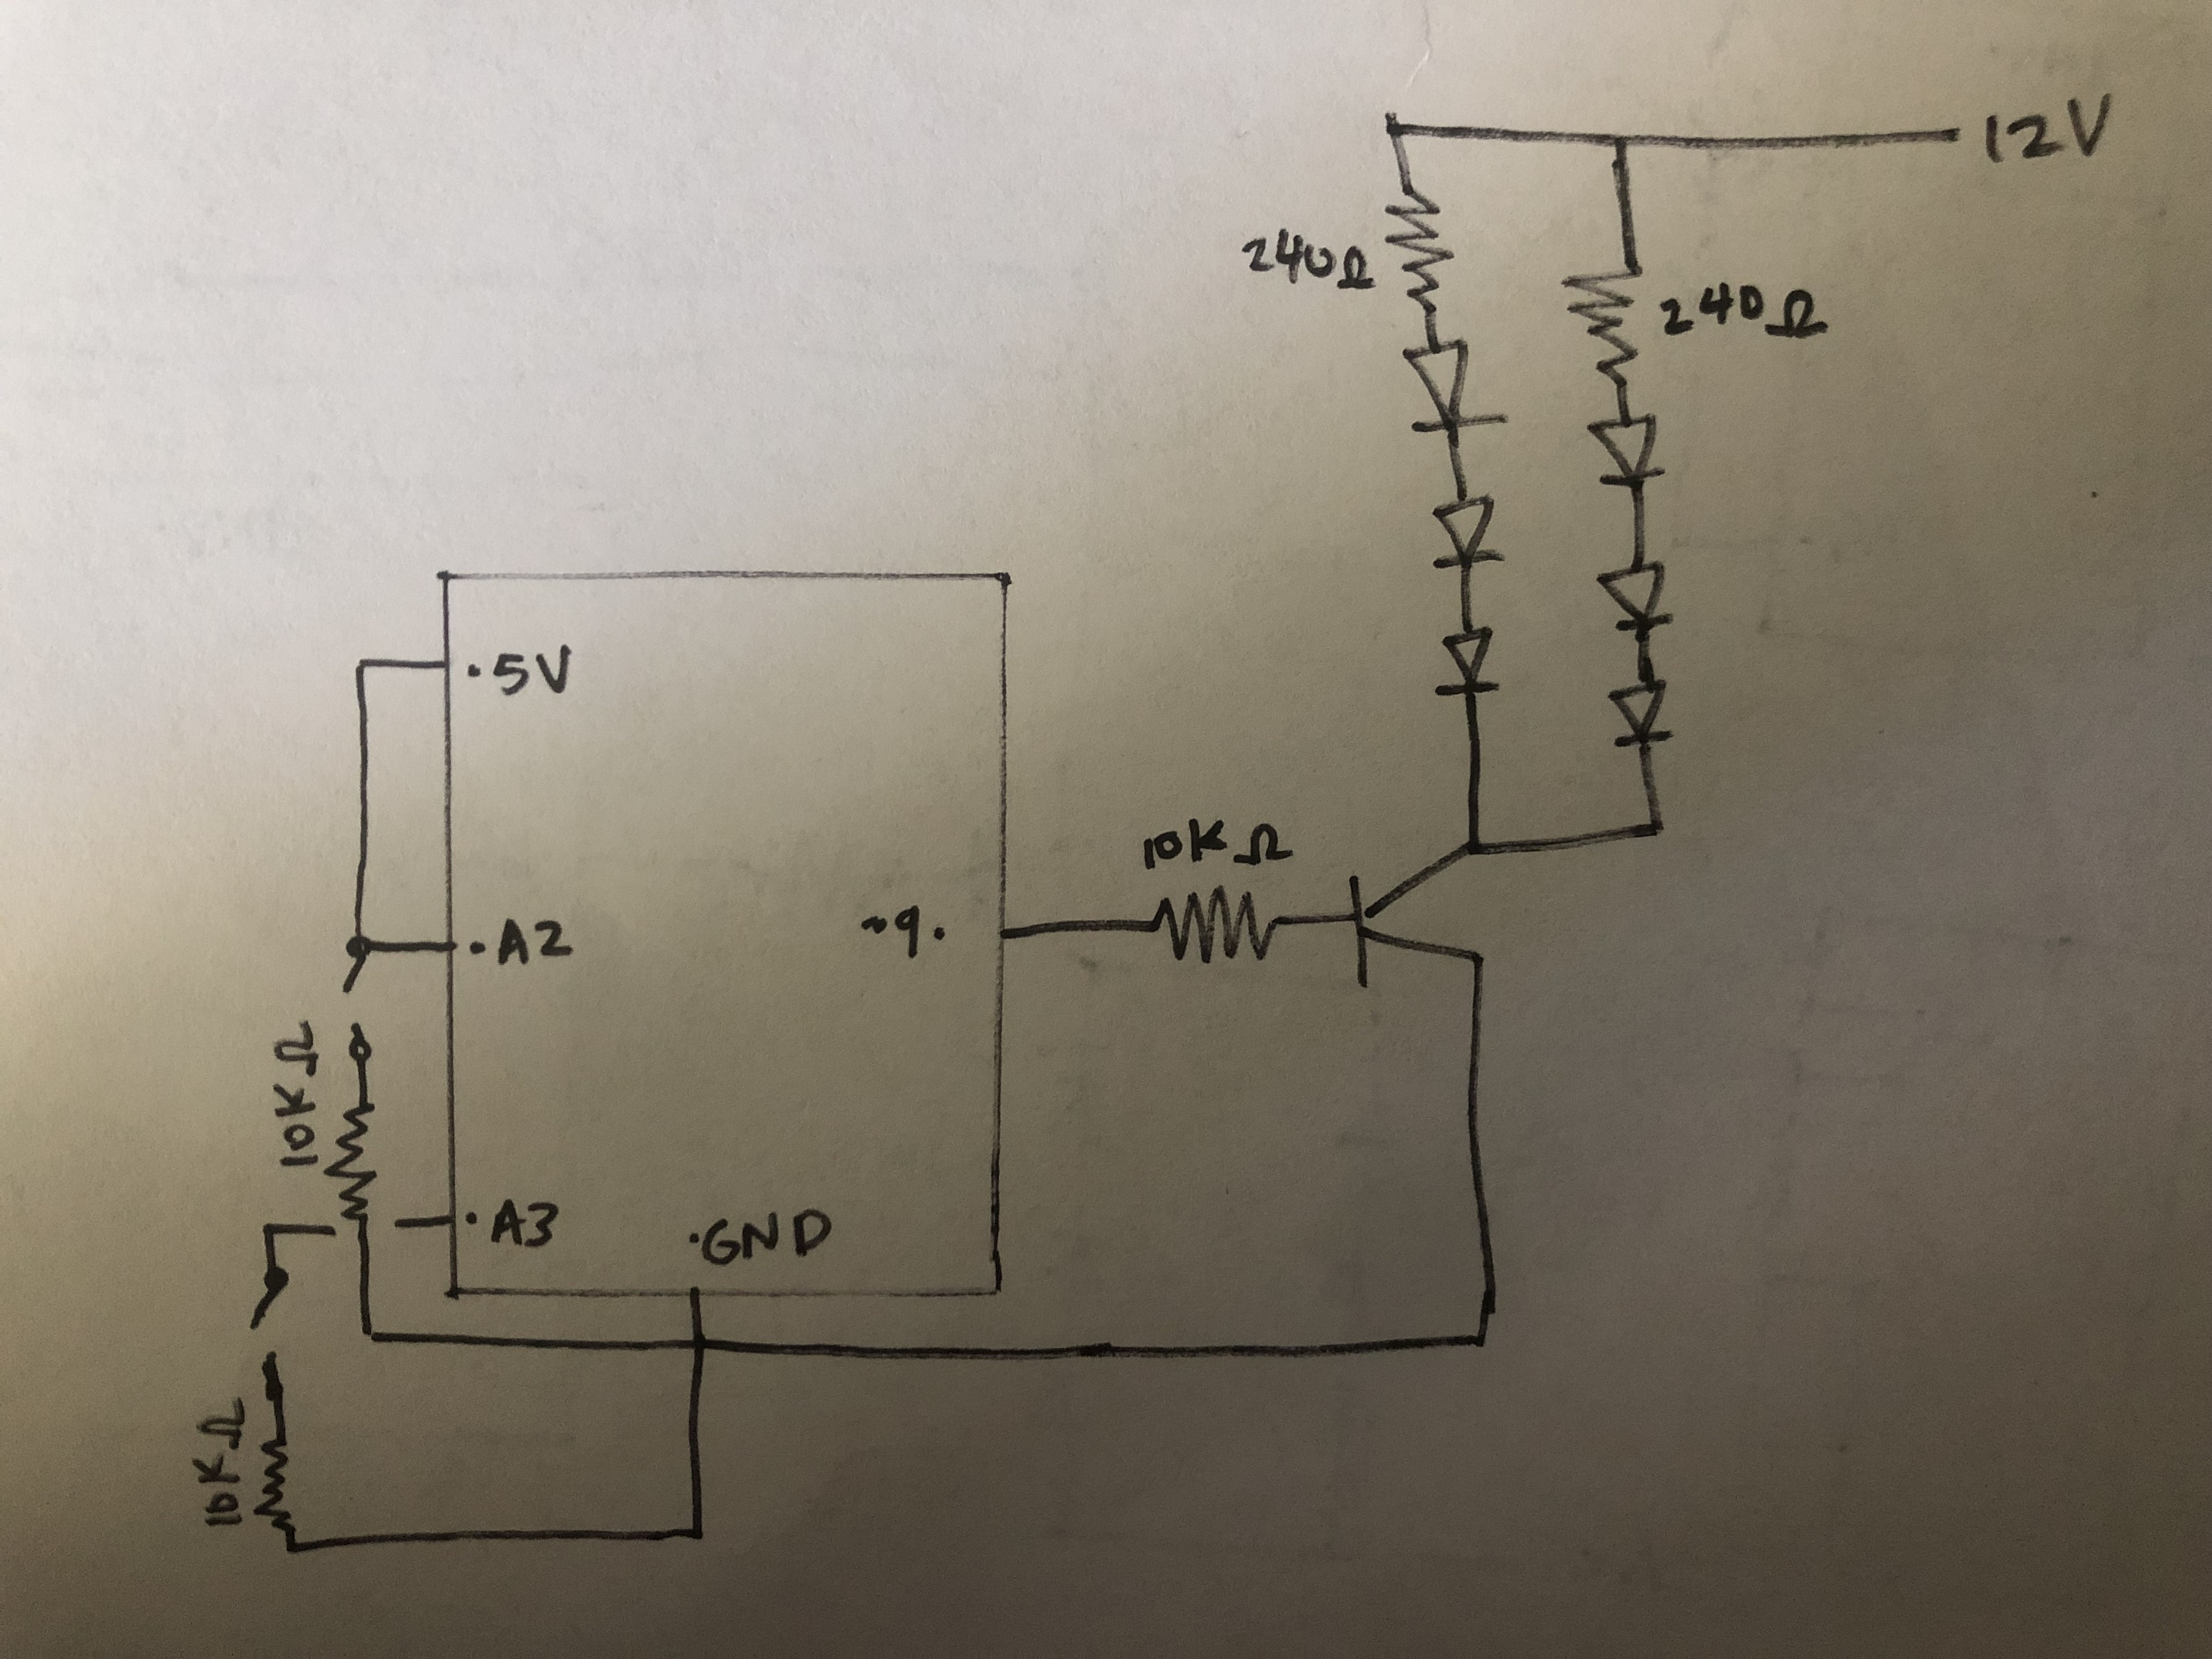 12V
240Ω
240Ω
.5V
10KΩ
~9.
.A2
10KΩ
.A3
.GND
10KΩ